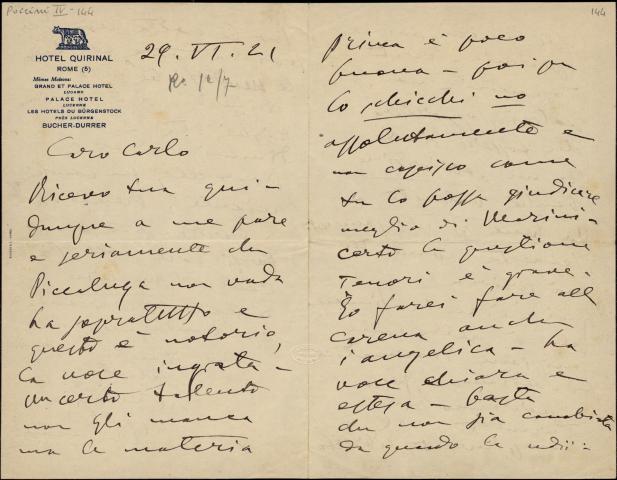 Puccini IV-144
144
HOTEL QUIRINAL
ROME (5)
Mêmes Maisons:
GRAND ET PALACE HOTEL
LUGANO
PALACE HOTEL
LUCERNE
LES HOTELS DU BÜRGENSTOCK
PRÈS LUCERNE
BUCHER-DURRER
29. VI. 21
R. 1º/7
Caro Carlo
Ricevo tua qui -
dunque a me pare
e seriamente che
Piccaluga non vada
ha sopratutto e
questo è notorio,
la voce ingrata -
un certo talento
non gli manca
ma la materia
prima è poco
buona - poi per
lo schicchi no
assolutamente e
non capisco come
tu lo possa giudicare
meglio di Merini -
certo la questione
tenori è grave -
Io farei fare alla
Carena anche
l'angelica - ha
voce chiara e
estesa - basta
che non sia cambiata
da quando la udii -